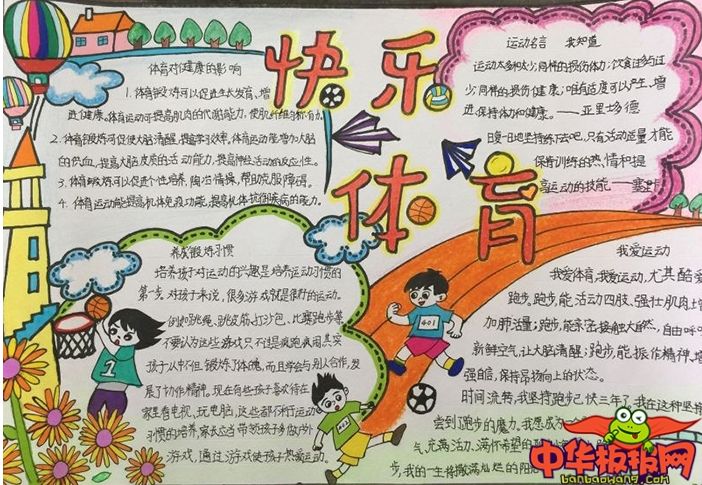 快乐
体育
体育对健康的影响
1.体育锻炼可以促进生长发育、增
进健康。体育运动可提高肌肉的代谢能力,使肌纤维
2.体育锻炼可促使大脑清醒,提高学习效率。体育运动能增加大脑
的供血,提高大脑皮层的活动能力,提高神经活动的反应性。
3.体育锻炼可以促进个性培养,陶冶情操,帮助克服障碍。
4.体育运动能提高机体免疫功能,提高机体抗御疾病的能力。
运动名言 我知道
运动太多和太少,同样的损伤体力;饮食过多过
少,同样的损伤健康;唯有适度可以产生、增
进、保持体力和健康。——亚里
日复一日地坚持练下去吧,只有活动适量才能
保持训练的热情和提
高运动的技能——塞
养成锻炼习惯
培养孩子对运动的兴趣是培养运动习惯的
第一步。对孩子来说,很多游戏就是很好的运动。
例如跳绳、跳皮筋、打沙包、比赛跑步等
不要认为这些游戏只不过是疯跑疯闹,其实
孩子从中不但锻炼了体魄,而且学会与别人合作,发
展了协作精神。现在有些孩子喜欢待在
家里看电视、玩电脑,这些都不利于运动
习惯的培养,家长应当带领孩子多做户外
游戏,通过游戏使孩子热爱运动。
我爱运动
我爱体育,我爱运动,尤其酷爱
跑步,跑步,能活动四肢,强壮肌肉
加肺活量;跑步,能亲密接触大自然,自由呼
新鲜空气,让大脑清醒;跑步,能振作精神,增
强自信,保持昂扬向上的状态。
时间流转,我坚持跑步已快三年了,我在这种坚持
尝到了跑步的魔力,我愿成为一个
气、充满活力、满怀希望的
步,我的一生将撒满灿烂的阳
1
401
中华板报网
banbaowang.com